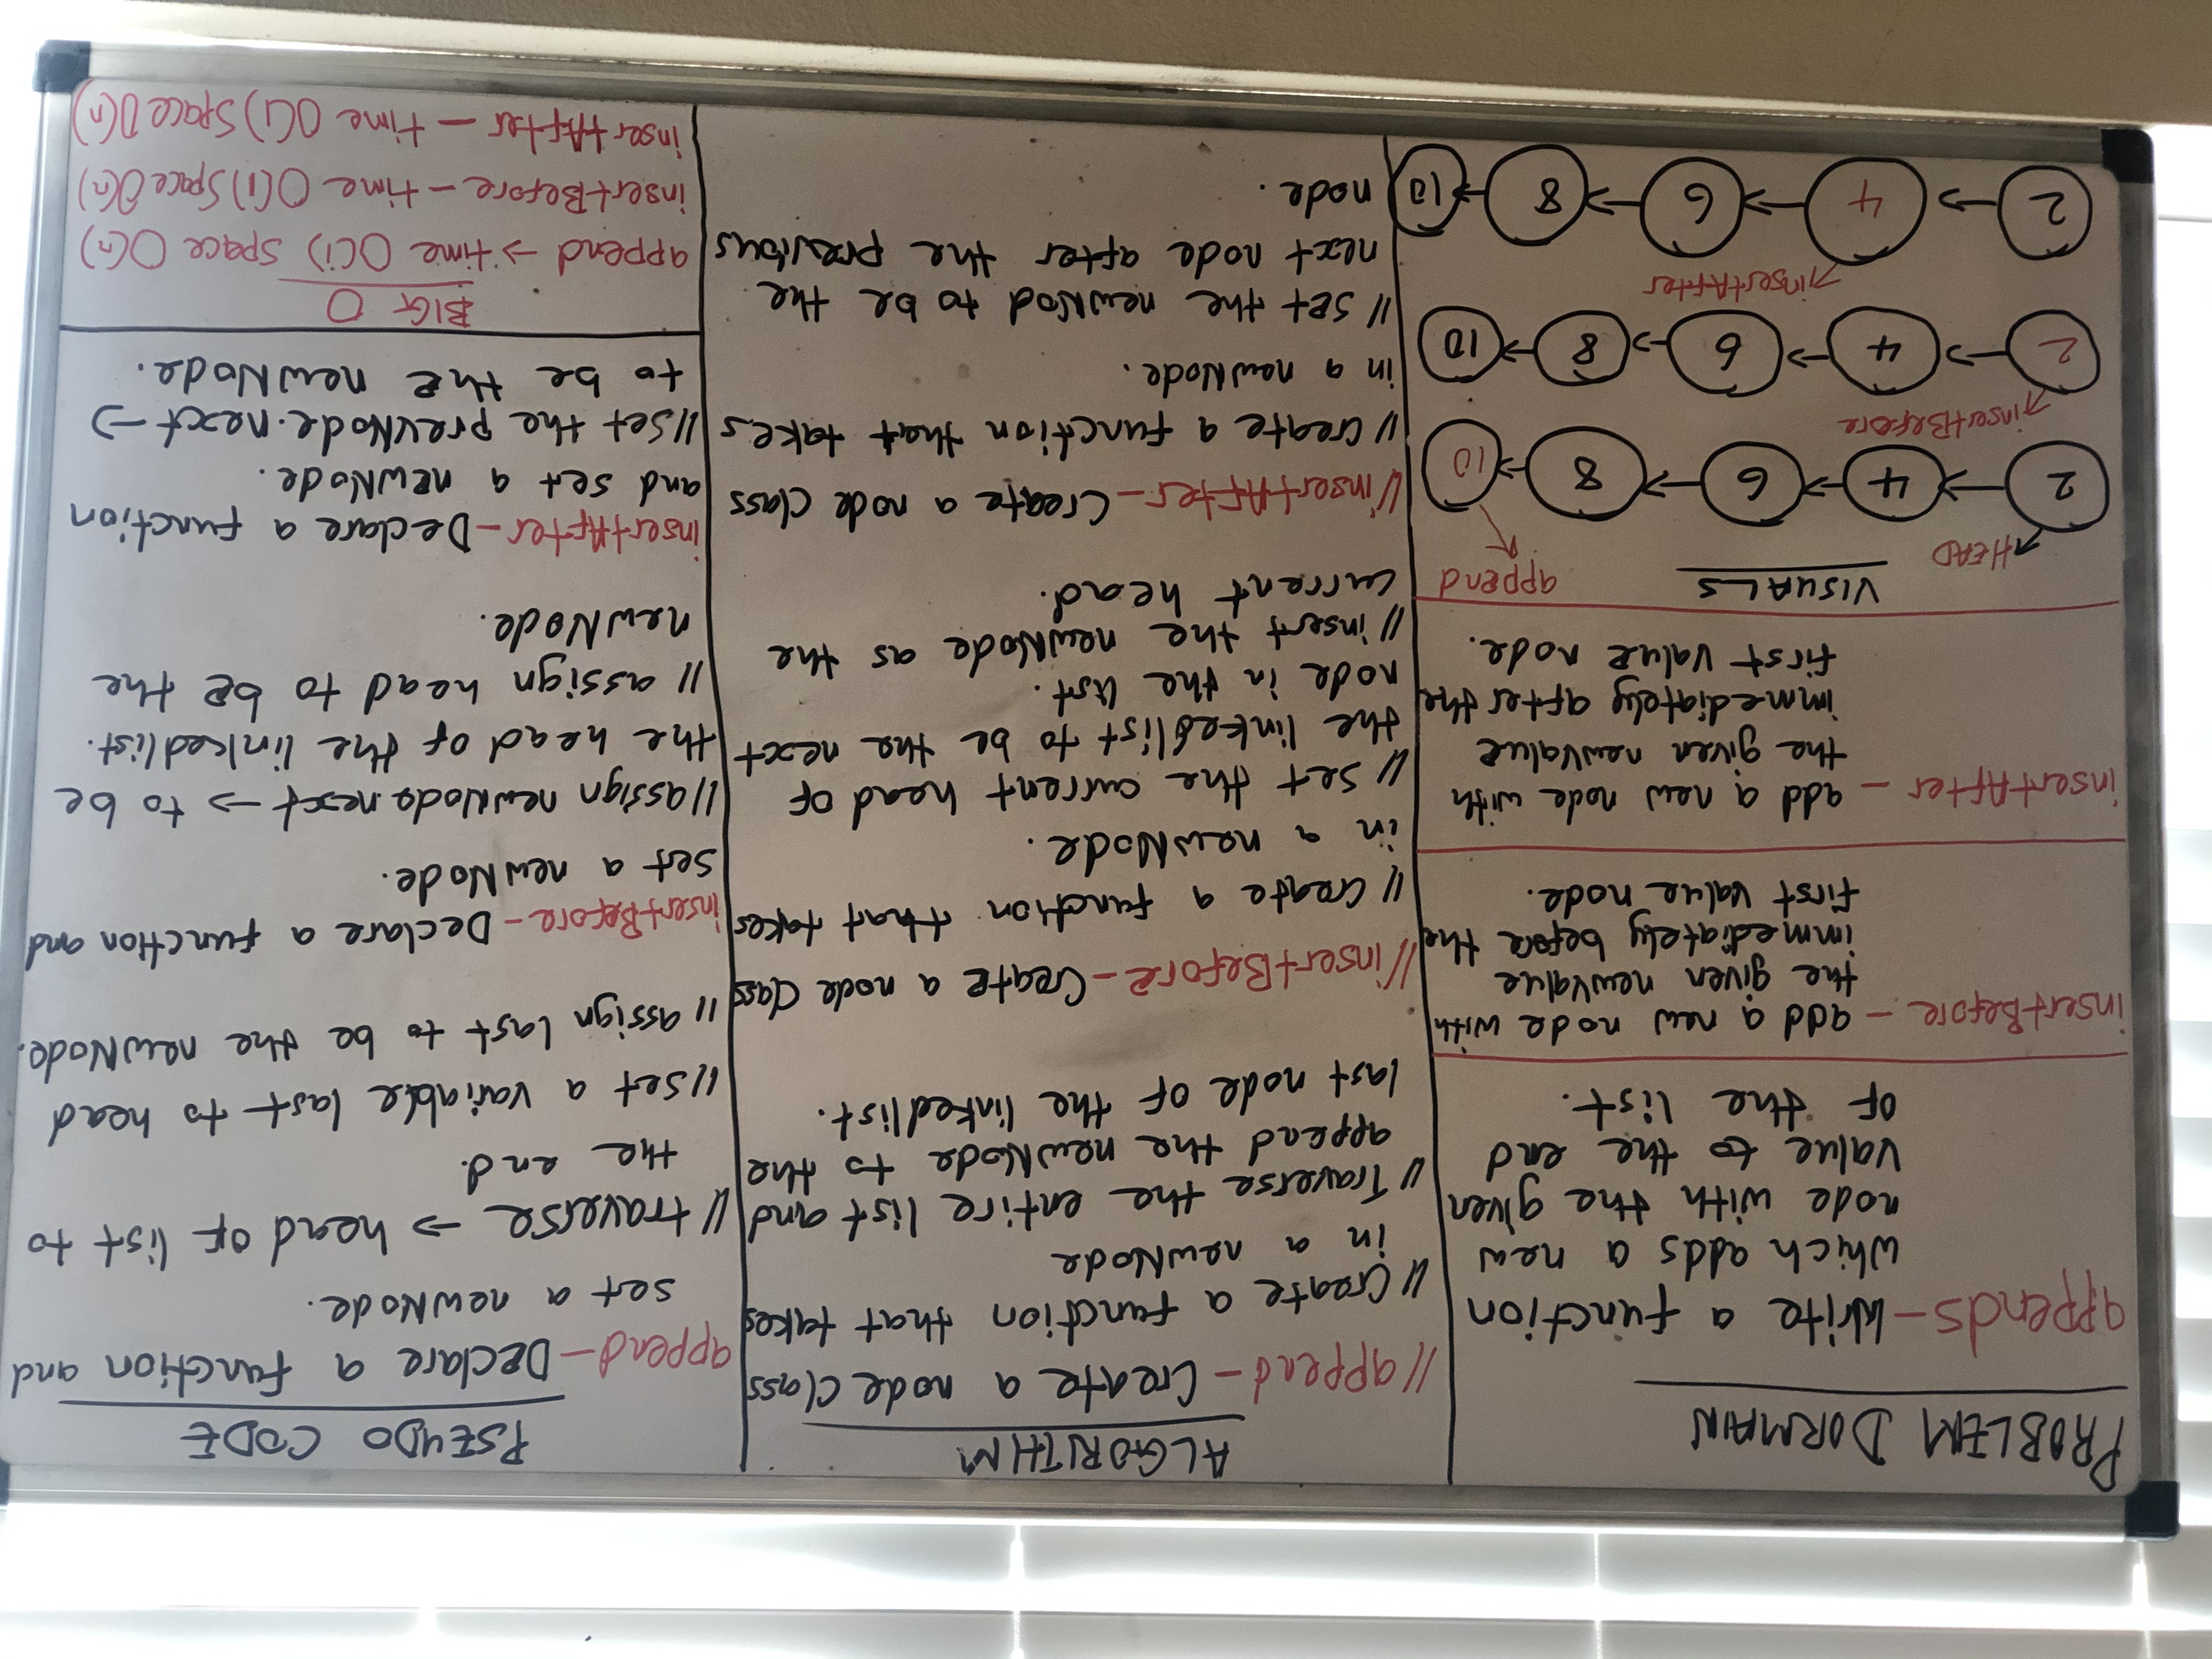 PROBLEM DORMAIN
appends - Write a function
which adds a new
node with the given
value to the end
of the list.
insertBefore - add a new node with
the given newValue
immediately before the
first value node.
insertAfter - add a new node with
the given newValue
immediately after the
first value node.
VISUALS
HEAD
append
2 → 4 → 6 → 8 → 10
insertBefore
2 → 4 → 6 → 8 → 10
insertAfter
2 → 4 → 6 → 8 → 10
ALGORITHM
// append - Create a node class
// Create a function that takes
in a newNode
// Traverse the entire list and
append the newNode to the
last node of the linkedlist.
// insertBefore - Create a node class
// create a function that takes
in a newNode.
// set the current head of
the linkedlist to be the next
node in the list.
// insert the newNode as the
current head.
// insertAfter - Create a node class
// create a function that takes
in a newNode.
// set the newNod to be the
next node after the previous
node.
PSEUDO CODE
append - Declare a function and
set a newNode.
// traverse → head of list to
the end.
// set a variable last to head
// assign last to be the newNode.
insertBefore - Declare a function and
set a newNode.
// assign newNode.next → to be
the head of the linkedlist.
// assign head to be the
newNode.
insertAfter - Declare a function
and set a newNode.
// Set the prevNode.next →
to be the newNode.
BIG O
append → time O(1) space O(n)
insertBefore - time O(1) Space O(n)
insertAfter - time O(1) Space O(n)